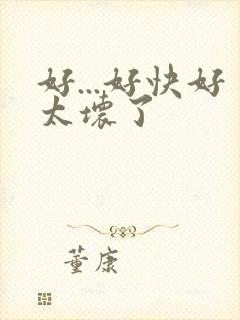 好...好快好
太壞了
董康